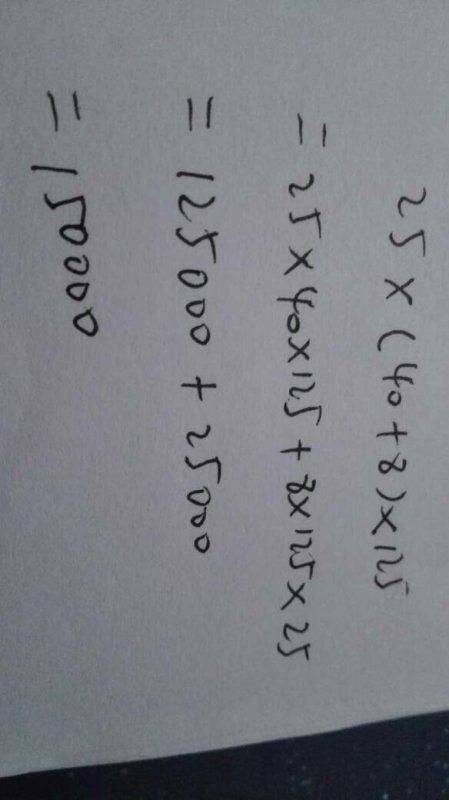 25×(40+8)×125
=25×40×125+8×125×25
=125000+25000
=150000